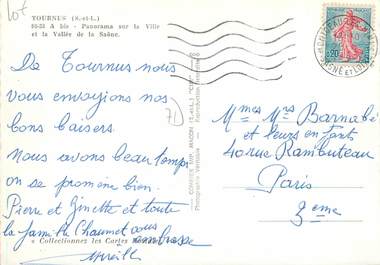 Lot
TOURNUS (S.-et-L.)
Panorama sur la Ville
et la Vallée de la Saône.
De Tournus nous
vous envoyions nos
bons baisers.
Nous avons beau temps
on se promène bien.
Pierre et Ginette et toute
la famille Chaumet vous
embrasse
Mireille
« Collectionnez les Cartes
71
COMBIER IMP. MACON (S.-et-L.) "CIM"
Mmes Mrs Barnabé
et leurs enfants
40 rue Rambuteau
Paris
3eme
0,20